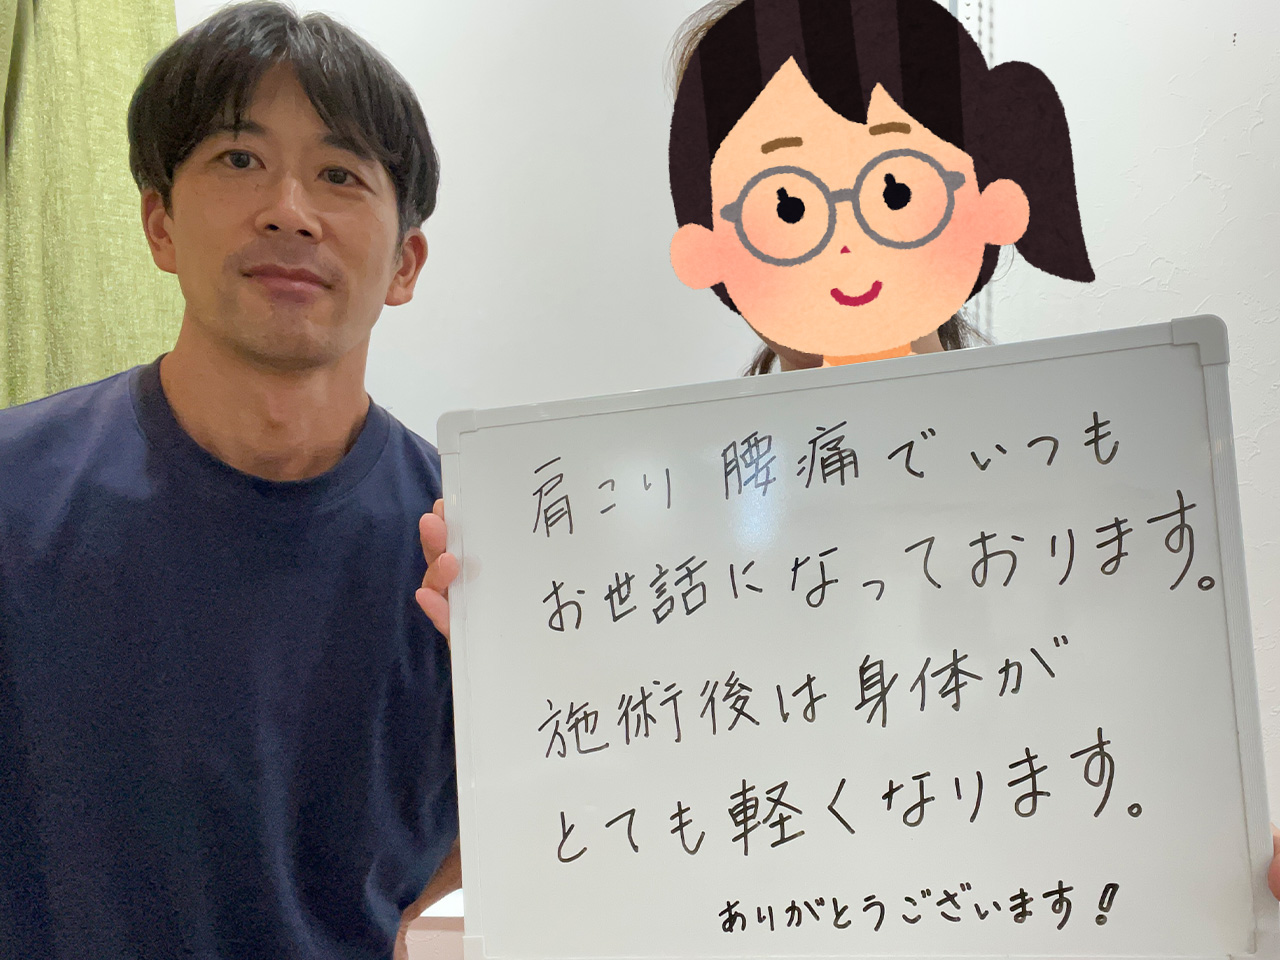 肩こり 腰痛でいつも
お世話になっております。
施術後は身体が
とても軽くなります。
ありがとうございます!